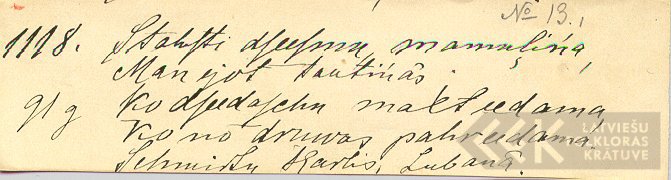 № 13.,
1118. Stahsti dseesmu, mamuliņa,
Man ejot tautiņâs.
919 Ko dseedaschu malteedama
Ko no druwas pahreedama.
Schmidtu Karlis, Lubanâ.
LATVIEŠU
FOLKLORAS
KRĀTUVE